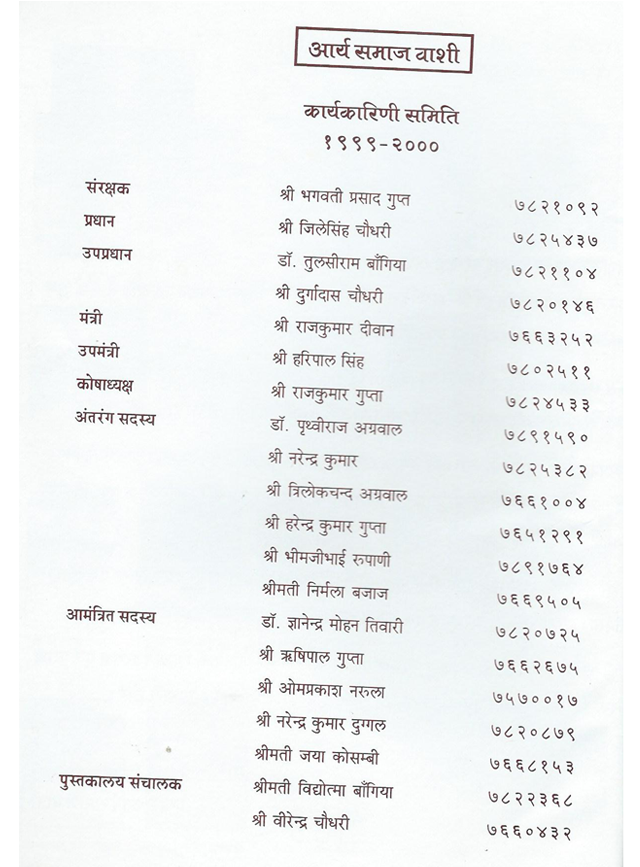 आर्य समाज वाशी
कार्यकारिणी समिति
१९९९-२०००
संरक्षक श्री भगवती प्रसाद गुप्त ७८२१०९२
प्रधान श्री जिलेसिंह चौधरी ७८२५४३७
उपप्रधान डॉ. तुलसीराम बाँगिया ७८२११०४
श्री दुर्गादास चौधरी ७८२०१४६
मंत्री श्री राजकुमार दीवान ७६६३२५२
उपमंत्री श्री हरिपाल सिंह ७८०२५११
कोषाध्यक्ष श्री राजकुमार गुप्ता ७८२४५३३
अंतरंग सदस्य डॉ. पृथ्वीराज अग्रवाल ७८९१५९०
श्री नरेन्द्र कुमार ७८२५३८२
श्री त्रिलोकचन्द अग्रवाल ७६६१००४
श्री हरेन्द्र कुमार गुप्ता ७६५१२९१
श्री भीमजीभाई रुपाणी ७८९१७६४
श्रीमती निर्मला बजाज ७६६९५०५
आमंत्रित सदस्य डॉ. ज्ञानेन्द्र मोहन तिवारी ७८२०७२५
श्री ऋषिपाल गुप्ता ७६६२६७५
श्री ओमप्रकाश नरुला ७५७००१७
श्री नरेन्द्र कुमार दुग्गल ७८२०८७९
श्रीमती जया कोसम्बी ७६६८१५३
पुस्तकालय संचालक श्रीमती विद्योत्मा बाँगिया ७८२२३६८
श्री वीरेन्द्र चौधरी ७६६०४३२